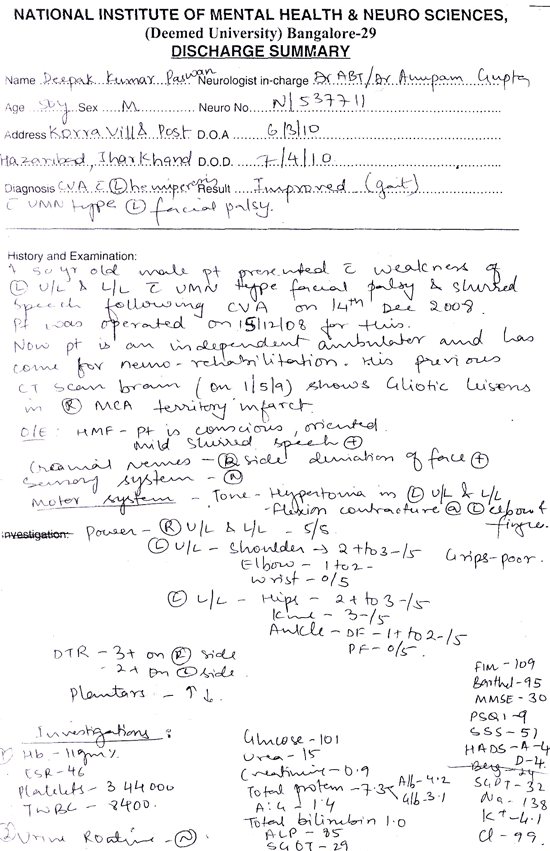 NATIONAL INSTITUTE OF MENTAL HEALTH & NEURO SCIENCES,
(Deemed University) Bangalore-29
DISCHARGE SUMMARY
Name Deepak Kumar Paswan Neurologist in-charge Dr ABT/Dr Anupam Gupta
Age 50y Sex M Neuro No. N/537711
Address Korra Vill & Post D.O.A 6/3/10
Hazaribad, Jharkhand D.O.D. 7/4/10
Diagnosis CVA c̄ Ⓛ hemiparesis Result Improved (gait)
c̄ UMN type Ⓛ facial palsy.
History and Examination:
A 50 yr old male pt presented c̄ weakness of
Ⓛ U/L & L/L c̄ UMN type facial palsy & slurred
speech following CVA on 14th Dec 2008.
Pt was operated on 15/12/08 for this.
Now pt is an independent ambulator and has
come for neuro-rehabilitation. His previous
CT scan brain (on 1/5/9) shows Gliotic leisons
in Ⓡ MCA territory infarct.
O/E: HMF - Pt is conscious, oriented
mild slurred speech ⊕
Cranial nerves - Ⓡ side deviation of face ⊕
Sensory system - Ⓝ
Motor system - Tone - Hypertonia in Ⓛ U/L & L/L
- Flexion contracture @ Ⓛ elbow &
finger.
Investigation: Power - Ⓡ U/L & L/L - 5/5
Ⓛ U/L - Shoulder → 2+ to 3-/5 Grips-poor.
Elbow - 1 to 2-
Wrist - 0/5
Ⓛ L/L - Hips - 2+ to 3-/5
Knee - 3-/5
Ankle - DF - 1+ to 2-/5
PF - 0/5
DTR - 3+ on Ⓡ side
- 2+ on Ⓛ side.
Plantars - ↑ ↓
FIM - 109
Barthel - 95
MMSE - 30
PSQI - 9
SSS - 51
HADS - A - 4
D - 4
Berg - 24
Investigations:
1) Hb - 11gm%
ESR - 46
Platelets - 344000
TWBC - 8400.
2) Urine Routine - Ⓝ
Glucose - 101
Urea - 15
Creatinine - 0.9
Total protein - 7.3 Alb - 4.2
Glb - 3.1
A:G - 1.4
Total bilirubin 1.0
ALP - 85
SGOT - 29
SGPT - 32
Na - 138
K+ - 4.1
Cl - 99.